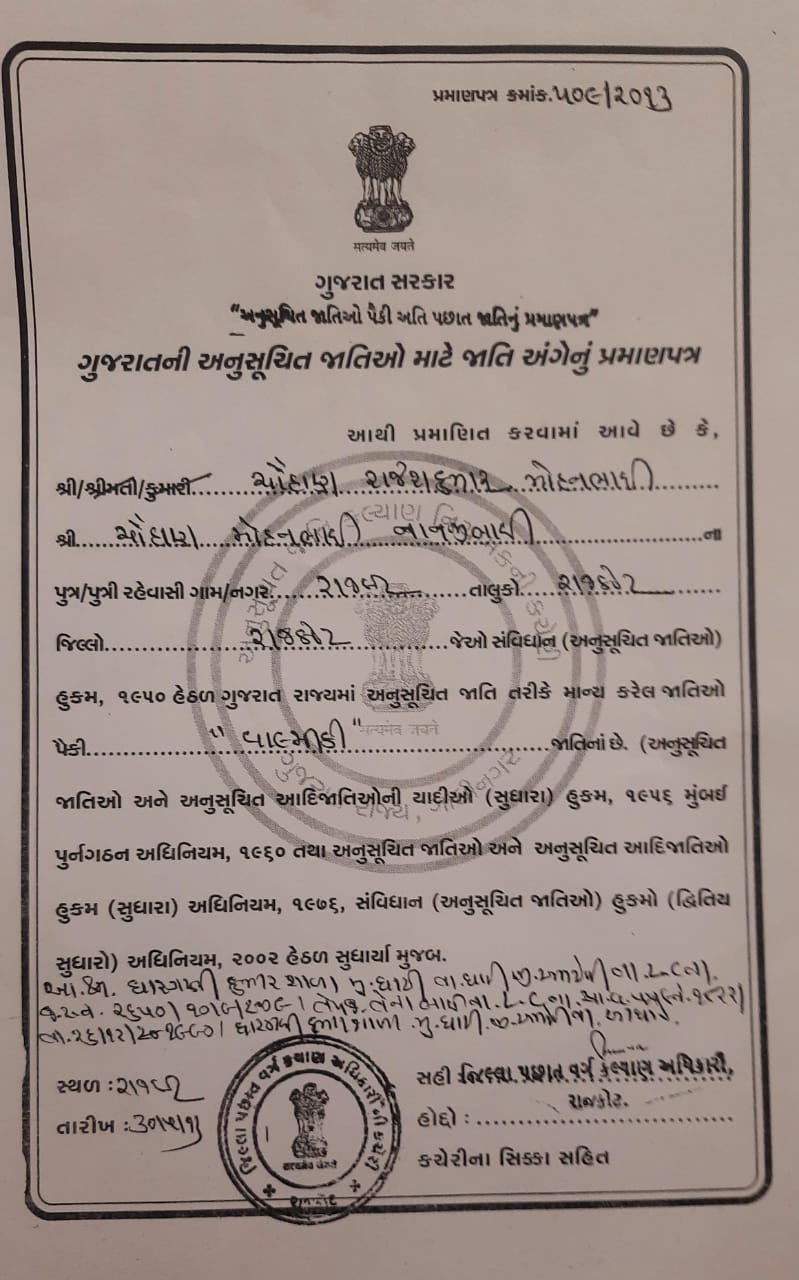 પ્રમાણપત્ર ક્રમાંક.૫૦૯/૨૦૧૩
सत्यमेव जयते
ગુજરાત સરકાર
“અનુસૂચિત જાતિઓ પૈકી અતિ પછાત જાતિનું પ્રમાણપત્ર”
ગુજરાતની અનુસૂચિત જાતિઓ માટે જાતિ અંગેનું પ્રમાણપત્ર
આથી પ્રમાણિત કરવામાં આવે છે કે,
શ્રી/શ્રીમતી/કુમારી. ચૌહાણ રાજેશકુમાર મોહનભાઈ
શ્રી. ચૌહાણ મોહનભાઈ નાનજીભાઈ ના
પુત્ર/પુત્રી રહેવાસી ગામ/નગર. તાલુકો. રાજકોટ
જિલ્લો. રાજકોટ જેઓ સંવિધાન (અનુસૂચિત જાતિઓ)
હુકમ, ૧૯૫૦ હેઠળ ગુજરાત રાજ્યમાં અનુસૂચિત જાતિ તરીકે માન્ય કરેલ જાતિઓ
પૈકી. "વાલ્મીકી" જાતિનાં છે. (અનુસૂચિત
જાતિઓ અને અનુસૂચિત આદિજાતિઓની યાદીઓ (સુધારા) હુકમ, ૧૯૫૬ મુંબઈ
પુર્નગઠન અધિનિયમ, ૧૯૬૦ તથા અનુસૂચિત જાતિઓ અને અનુસૂચિત આદિજાતિઓ
હુકમ (સુધારા) અધિનિયમ, ૧૯૭૬, સંવિધાન (અનુસૂચિત જાતિઓ) હુકમો (દ્વિતિય
સુધારો) અધિનિયમ, ૨૦૦૨ હેઠળ સુધાર્યા મુજબ.
સ્થળ :
તારીખ :
સહી જિલ્લા પછાત વર્ગ કલ્યાણ અધિકારી,
રાજકોટ.
હોદ્દો :
કચેરીના સિક્કા સહિત
જિલ્લા પછાત વર્ગ કલ્યાણ અધિકારીની કચેરી
सत्यमेव जयते
રાજકોટ